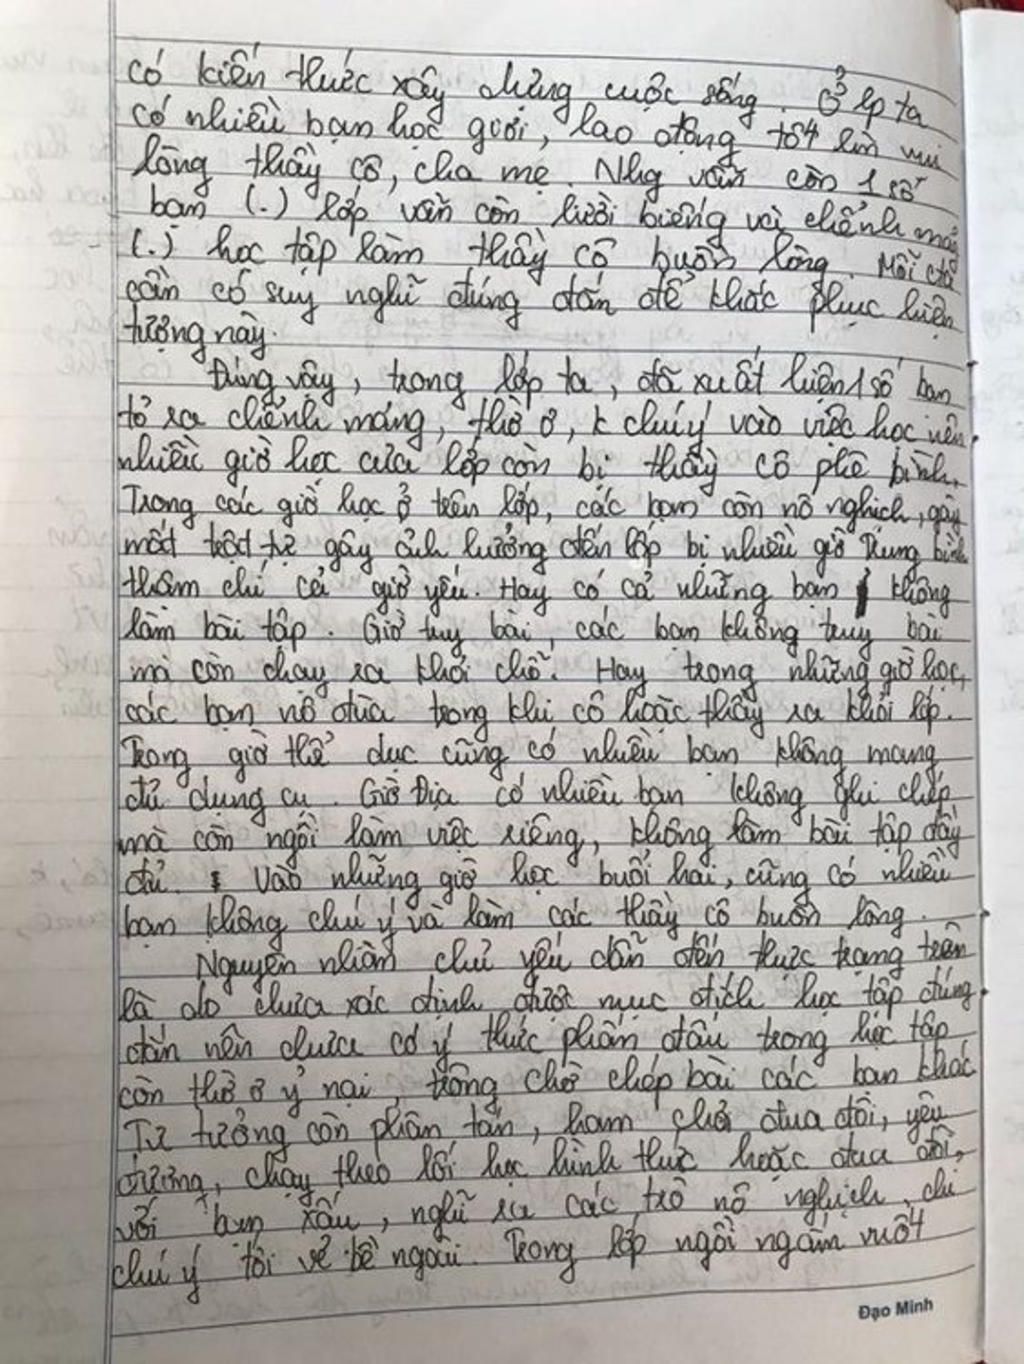 có kiến thức xây dựng cuộc sống. Ở lp ta
có nhiều bạn học giỏi, lao động tố4 làm vui
lòng thầy cô, cha mẹ. Nhg vẫn còn 1 số
bạn (.) lớp vẫn còn lười biếng và chểnh mảng
(.) học tập làm thầy cô buồn lòng. Mỗi ctà
cần có suy nghĩ đúng đắn để khắc phục hiện
tượng này.
Đúng vậy, trong lớp ta, đã xuất hiện 1 số bạn
tỏ ra chểnh mảng, thờ ơ, k chú ý vào việc học nên
nhiều giờ học của lớp còn bị thầy cô phê bình.
Trong các giờ học ở trên lớp, các bạn còn nô nghịch, gây
mất trật tự gây ảnh hưởng đến lớp bị nhiều giờ Trung bình
thậm chí cả giờ yếu. Hay có cả những bạn không
làm bài tập. Giờ truy bài, các bạn không truy bài
mà còn chạy ra khỏi chỗ. Hay trong những giờ học,
các bạn nô đùa trong khi cô hoặc thầy ra khỏi lớp.
Trong giờ thể dục cũng có nhiều bạn không mang
đủ dụng cụ. Giờ Địa có nhiều bạn không ghi chép
mà còn ngồi làm việc riêng, không làm bài tập đầy
đủ. Vào những giờ học buổi hai, cũng có nhiều
bạn không chú ý và làm các thầy cô buồn lòng.
Nguyên nhân chủ yếu dẫn đến thực trạng trên
là do chưa xác định được mục đích học tập đúng
đắn nên chưa có ý thức phấn đấu trong học tập
còn thờ ơ ỷ nại, trông chờ chép bài các bạn khác
Tư tưởng còn phân tán, ham chơi đua đòi, yêu
đương, chạy theo lối học hình thức hoặc đua đòi,
với bạn xấu, nghĩ ra các trò nô nghịch, chỉ
chú ý tới vẻ bề ngoài. Trong lớp ngồi ngắm vuố4
Đạo Minh